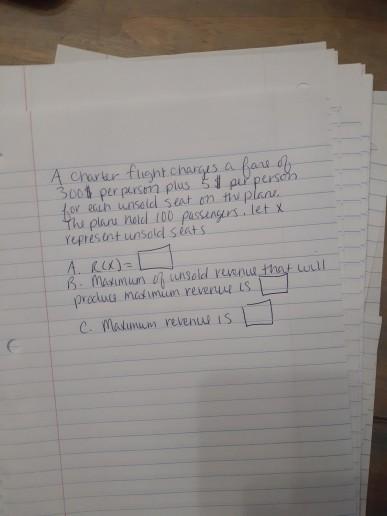 A Charter flight charges a fare of
300$ per person plus 5$ per person
for each unsold seat on the plane.
The plane hold 100 passengers. let x
represent unsold seats
A. R(x)=
B. Maximum of unsold revenue that will
produce maximum revenue is
C. Maximum revenue is